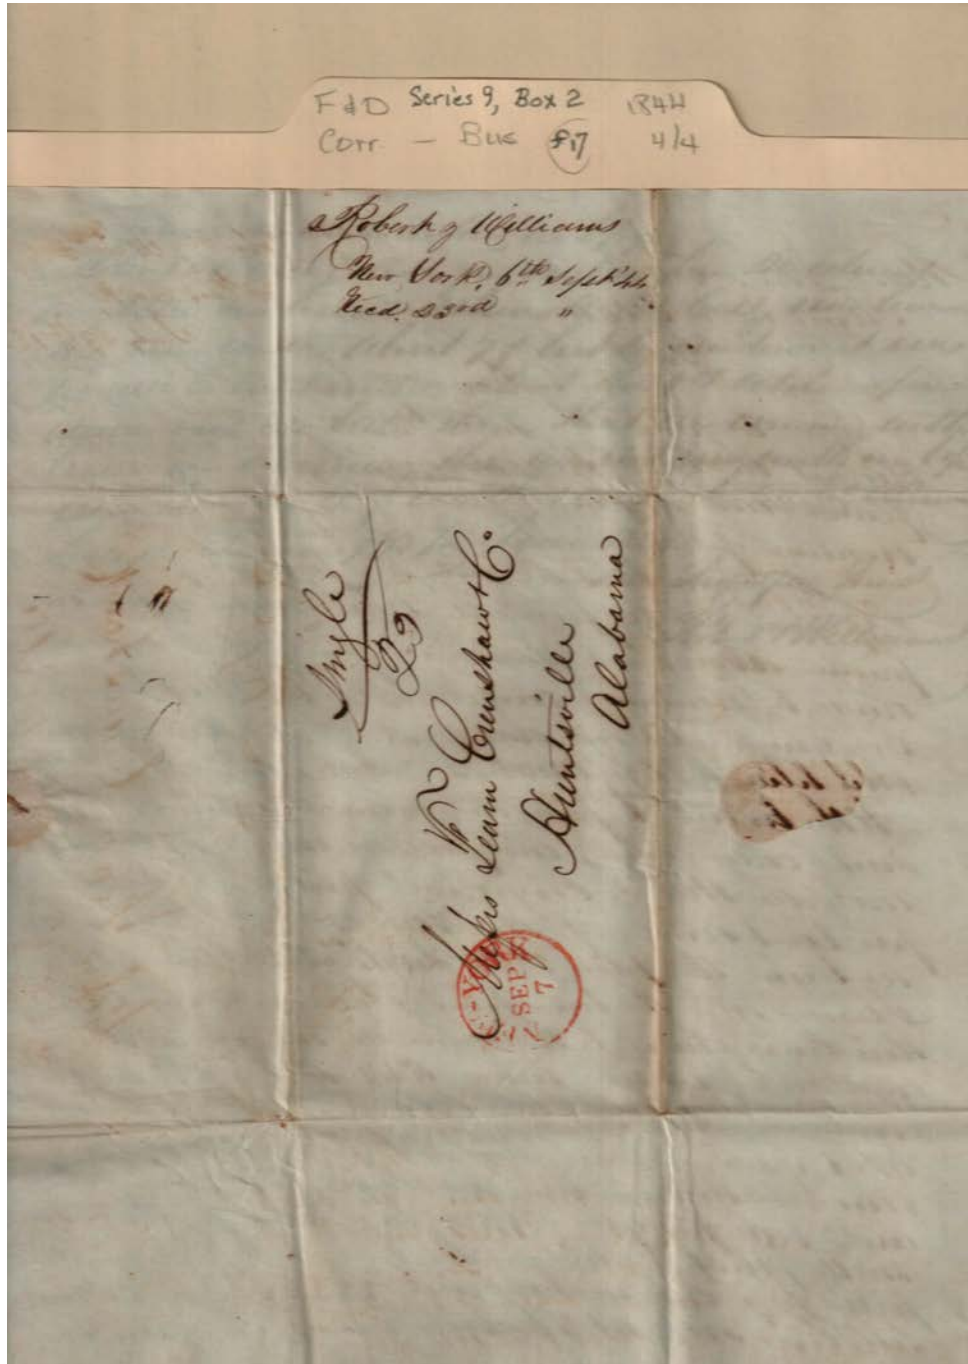 F & D Series 9, Box 2 1844
Corr — Bus f17 4/4
Robert & Williams
New York, 6th Sept '44
Recd. 23rd "
Single
25
Fearn Crenshaw & Co.
Huntsville
Alabama
NEW-YORK
SEP
7